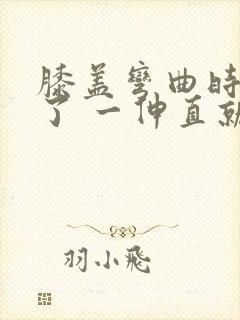 膝盖弯曲时
了 一伸直就
羽小飞